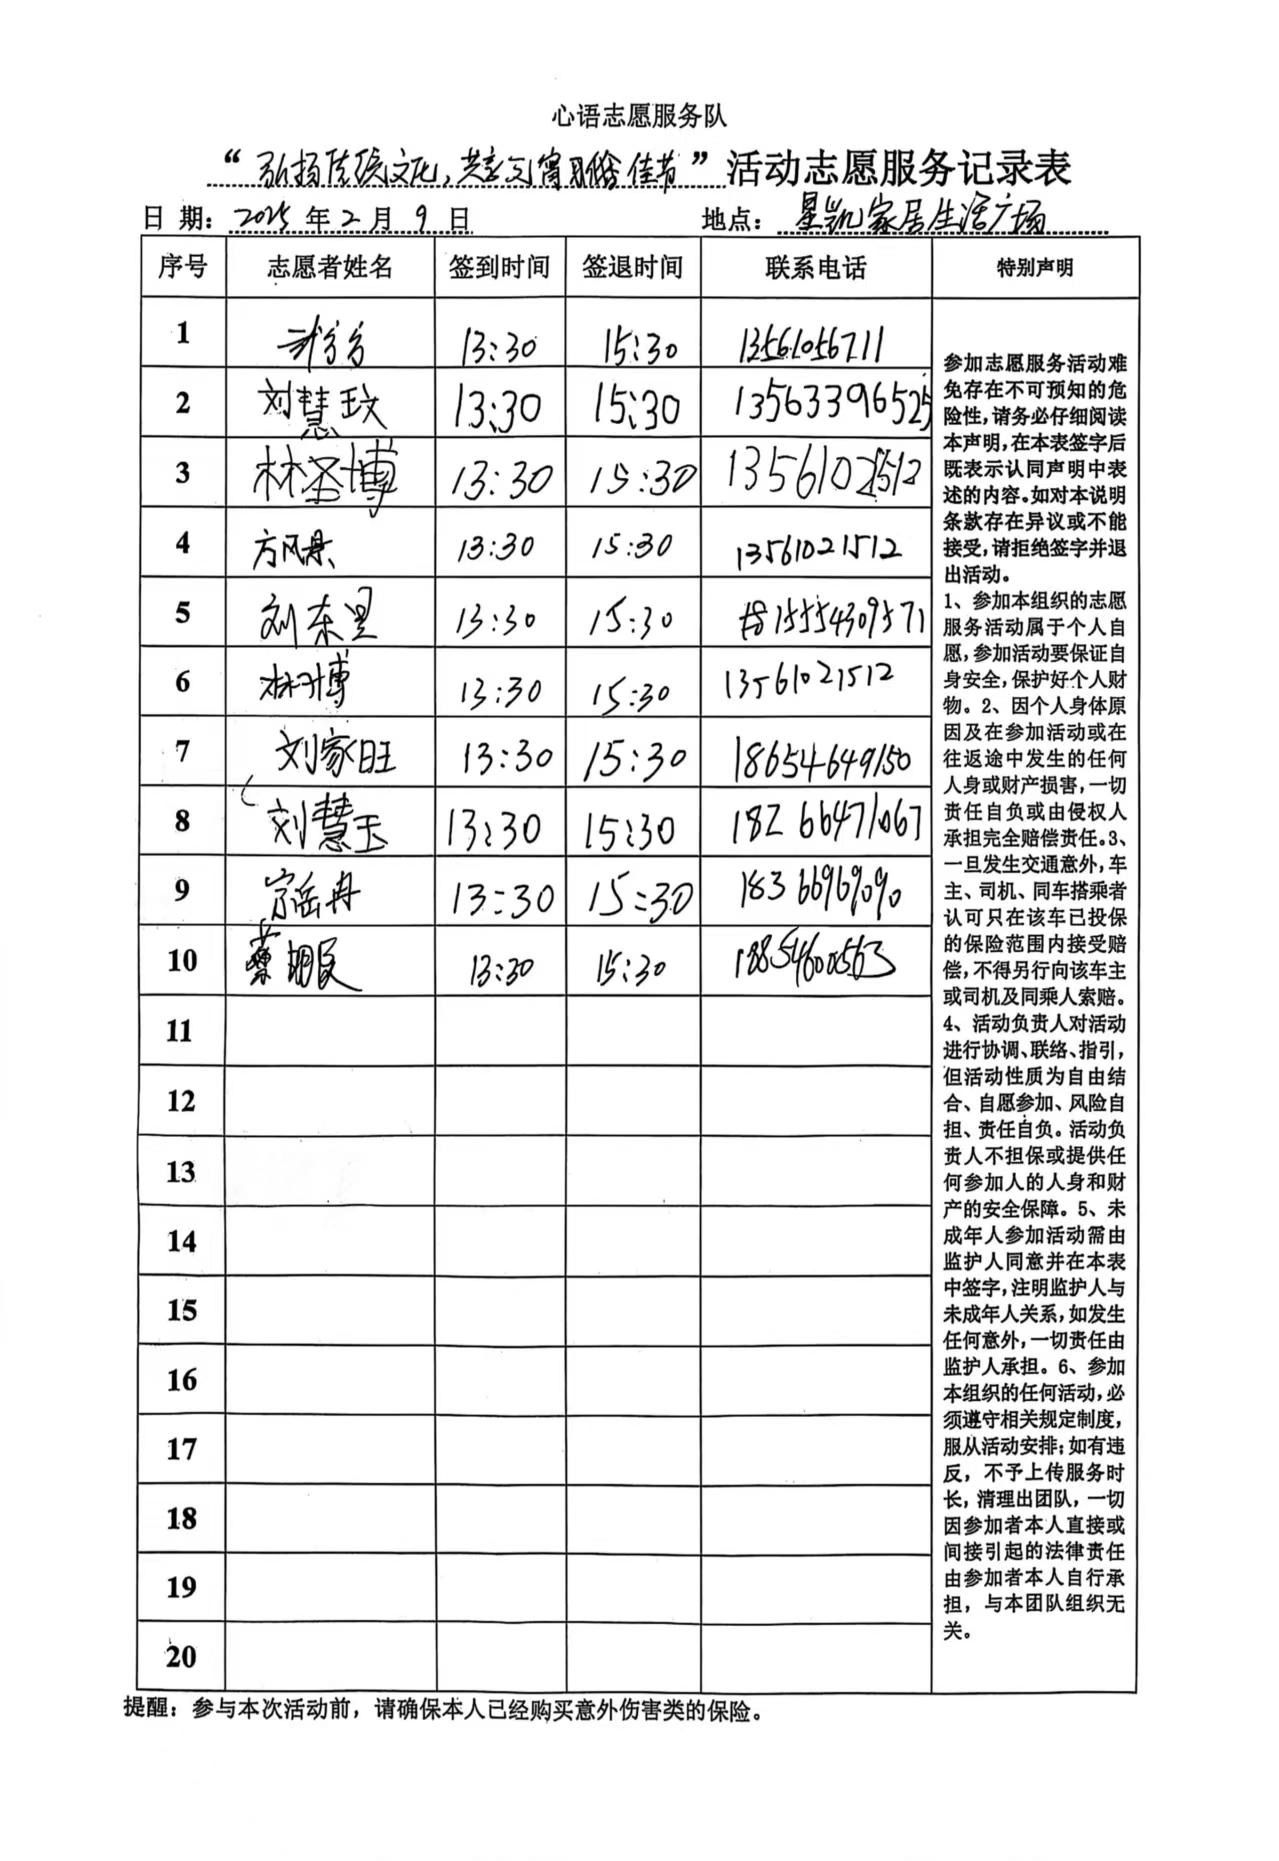 心语志愿服务队
“弘扬传统文化，共享元宵佳节”活动志愿服务记录表
日 期：2025年2月9日 地点：星凯家居生活广场
序号 志愿者姓名 签到时间 签退时间 联系电话 特别声明
1 13:30 15:30 13561056711
2 刘慧玟 13:30 15:30 13563396525
3 林圣博 13:30 15:30
4 方风景 13:30 15:30 13561021512
5 刘东昱 13:30 15:30 15554309571
6 13:30 15:30 13561021512
7 刘家旺 13:30 15:30 18654649150
8 刘慧玉 13:30 15:30 18266471067
9 宗岳冉 13:30 15:30 18366969090
10 13:30 15:30 18854600563
11
12
13
14
15
16
17
18
19
20
参加志愿服务活动难
免存在不可预知的危
险性，请务必仔细阅读
本声明，在本表签字后
既表示认同声明中表
述的内容。如对本说明
条款存在异议或不能
接受，请拒绝签字并退
出活动。
1、参加本组织的志愿
服务活动属于个人自
愿，参加活动要保证自
身安全，保护好个人财
物。2、因个人身体原
因及在参加活动或在
往返途中发生的任何
人身或财产损害，一切
责任自负或由侵权人
承担完全赔偿责任。3、
一旦发生交通意外，车
主、司机、同车搭乘者
认可只在该车已投保
的保险范围内接受赔
偿，不得另行向该车主
或司机及同乘人索赔。
4、活动负责人对活动
进行协调、联络、指引，
但活动性质为自由结
合、自愿参加、风险自
担、责任自负。活动负
责人不担保或提供任
何参加人的人身和财
产的安全保障。5、未
成年人参加活动需由
监护人同意并在本表
中签字，注明监护人与
未成年人关系，如发生
任何意外，一切责任由
监护人承担。6、参加
本组织的任何活动，必
须遵守相关规定制度，
服从活动安排；如有违
反，不予上传服务时
长，清理出团队，一切
因参加者本人直接或
间接引起的法律责任
由参加者本人自行承
担，与本团队组织无
关。
提醒：参与本次活动前，请确保本人已经购买意外伤害类的保险。